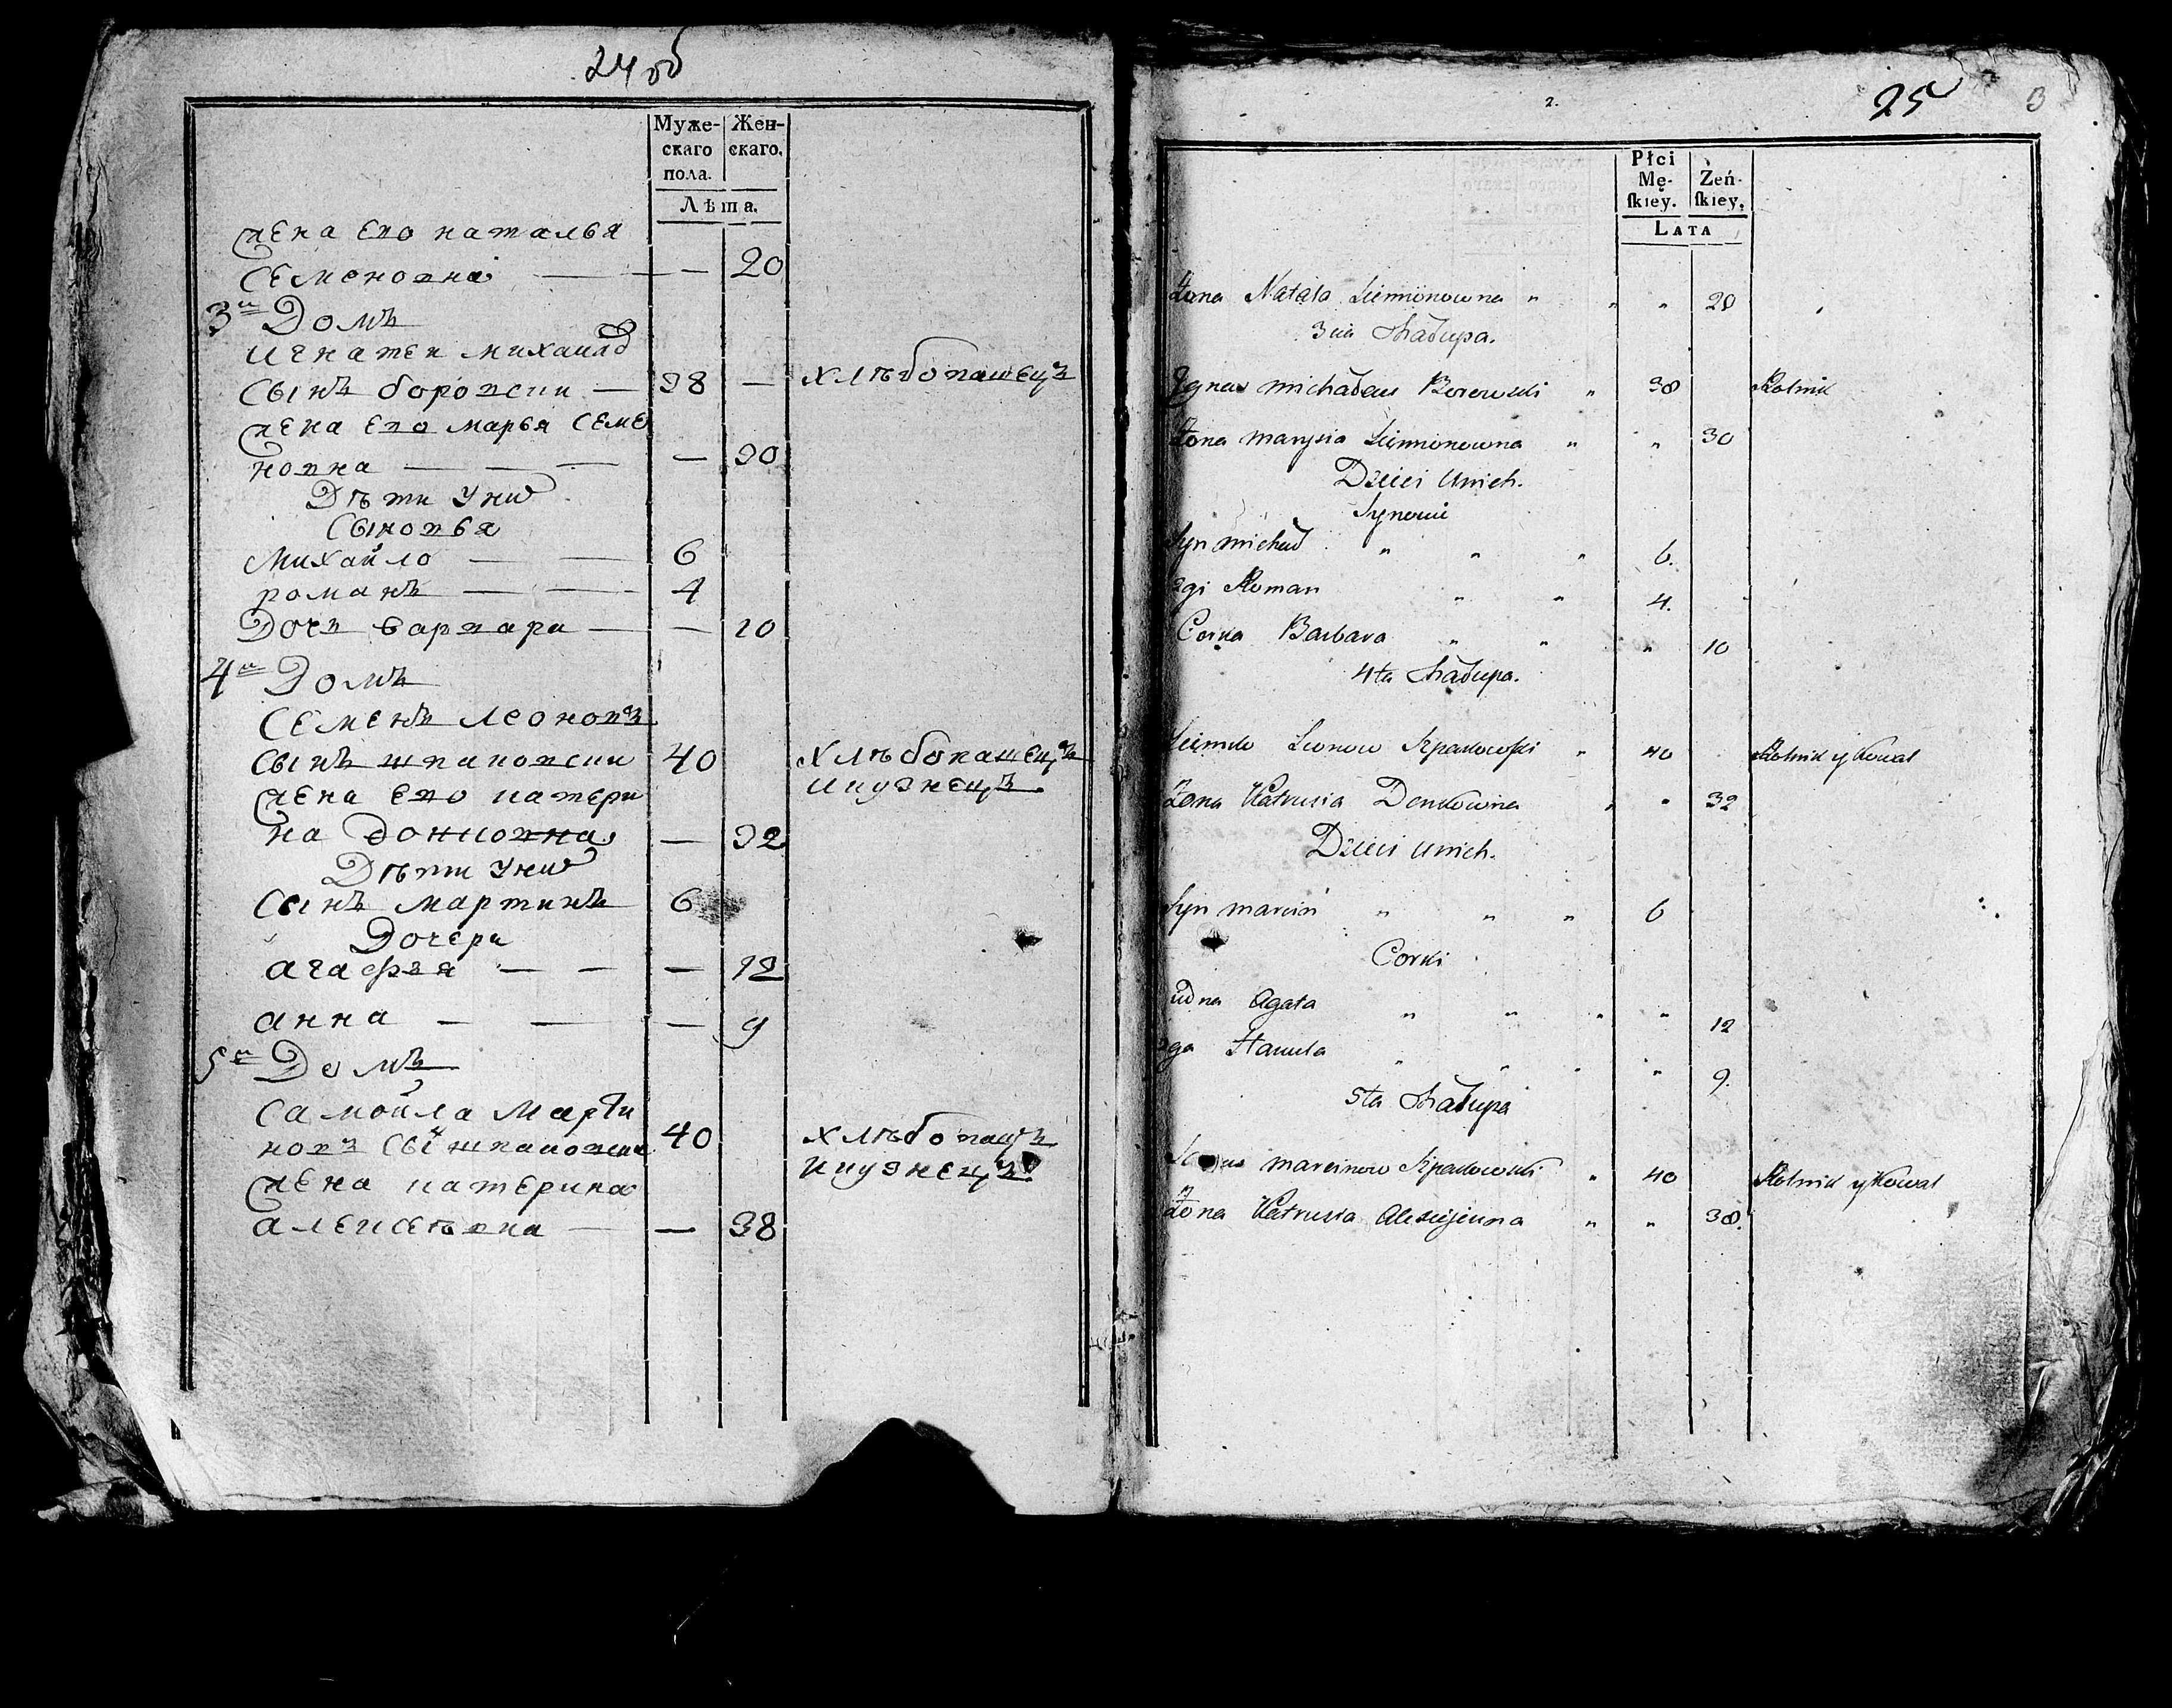 24 об
Муже-
скаго
пола.
Жен-
скаго.
Лѣта.
жена его наталья
Семеновна — — — 20
3й Домъ
игнатей михайлов
Сынъ боровски — 38 — хлѣбопашецъ
жена его марья Семе
новна — — — — 30
Дѣти у них
Сыновья
Михайло — — 6
романъ — — — 4
Дочь варвара — — 10
4й Домъ
Семенъ леоновъ
Сынъ шпаковски 40 хлѣбопашецъ
жена его катери
и кузнецъ
на донковна — 32
Дѣти у них
Сынъ мартинъ 6
Дочери
агафья — — — 12
анна — — — 9
5й Домъ
Самойла Марти
новъ Сын шпаковски 40 хлѣбопашцъ
и кузнецъ
жена катерина
алексѣевна — — 38
2.
25
3
Płci
Mę-
skiey.
Żeń-
skiey.
LATA
Żona Natala Siemionowna " " " 20
3cia Chałupa.
Ignas michałow Borowski " 38 Rolnik
Żona marysia Siemionowna " " 30
Dzieci u nich.
Synowie
Syn michał " " " 6.
2gi Roman " " 4.
Corka Barbara " " " 10
4ta Chałupa.
Siemio Leonow Szpakowski " 40 Rolnik y Kowal
Żona Katrusia Donkowna " " 32
Dzieci u nich.
Syn marcin " " " 6
Corki
Agata " " " " 12
2ga Hanula " " " " 9.
5ta Chałupa
marcinow Szpakowski " 40 Rolnik y Kowal
Żona Katrusia Alexiejewna " " 38.